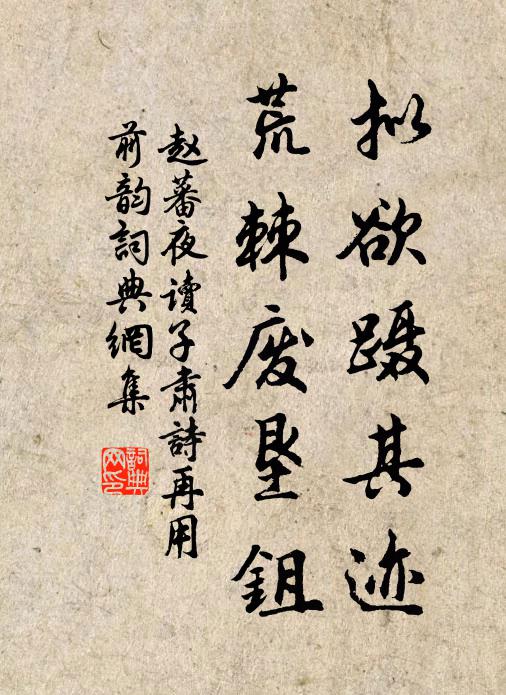 拟欲蹑其迹
荒棘废垦鉏
赵蕃夜读子肃詩再用
前韵詞典網集
詞典网印